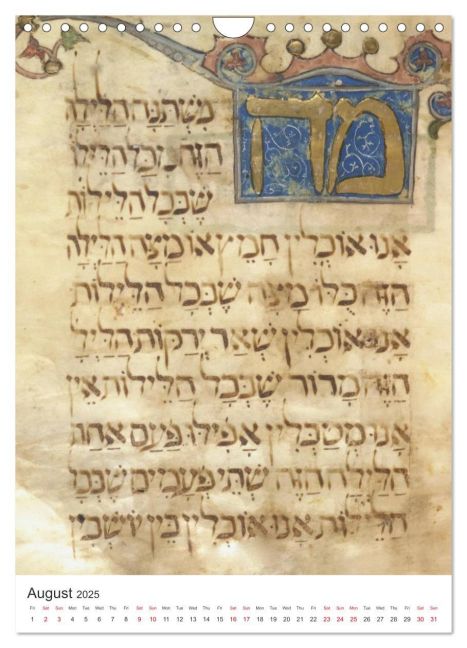 מָה
מִשְׁתַּנָּה הַלַּיְלָה
הַזֶּה מִכָּל הַלֵּילוֹ
שֶׁבְּכָל הַלֵּילוֹת
אָנוּ אוֹכְלִין חָמֵץ אוֹ מַצָּה הַלַּיְלָה
הַזֶּה כֻּלּוֹ מַצָּה שֶׁבְּכָל הַלֵּילוֹת
אָנוּ אוֹכְלִין שְׁאָר יְרָקוֹת הַלַּיְלָה
הַזֶּה מָרוֹר שֶׁבְּכָל הַלֵּילוֹת אֵין
אָנוּ מְטַבְּלִין אֲפִילוּ פַּעַם אַחַת
הַלַּיְלָה הַזֶּה שְׁתֵּי פְּעָמִים שֶׁבְּכָל
הַלֵּילוֹת אָנוּ אוֹכְלִין בֵּין יוֹשְׁבִין
August 2025
Fri Sat Sun Mon Tue Wed Thu Fri Sat Sun Mon Tue Wed Thu Fri Sat Sun Mon Tue Wed Thu Fri Sat Sun Mon Tue Wed Thu Fri Sat Sun
1 2 3 4 5 6 7 8 9 10 11 12 13 14 15 16 17 18 19 20 21 22 23 24 25 26 27 28 29 30 31